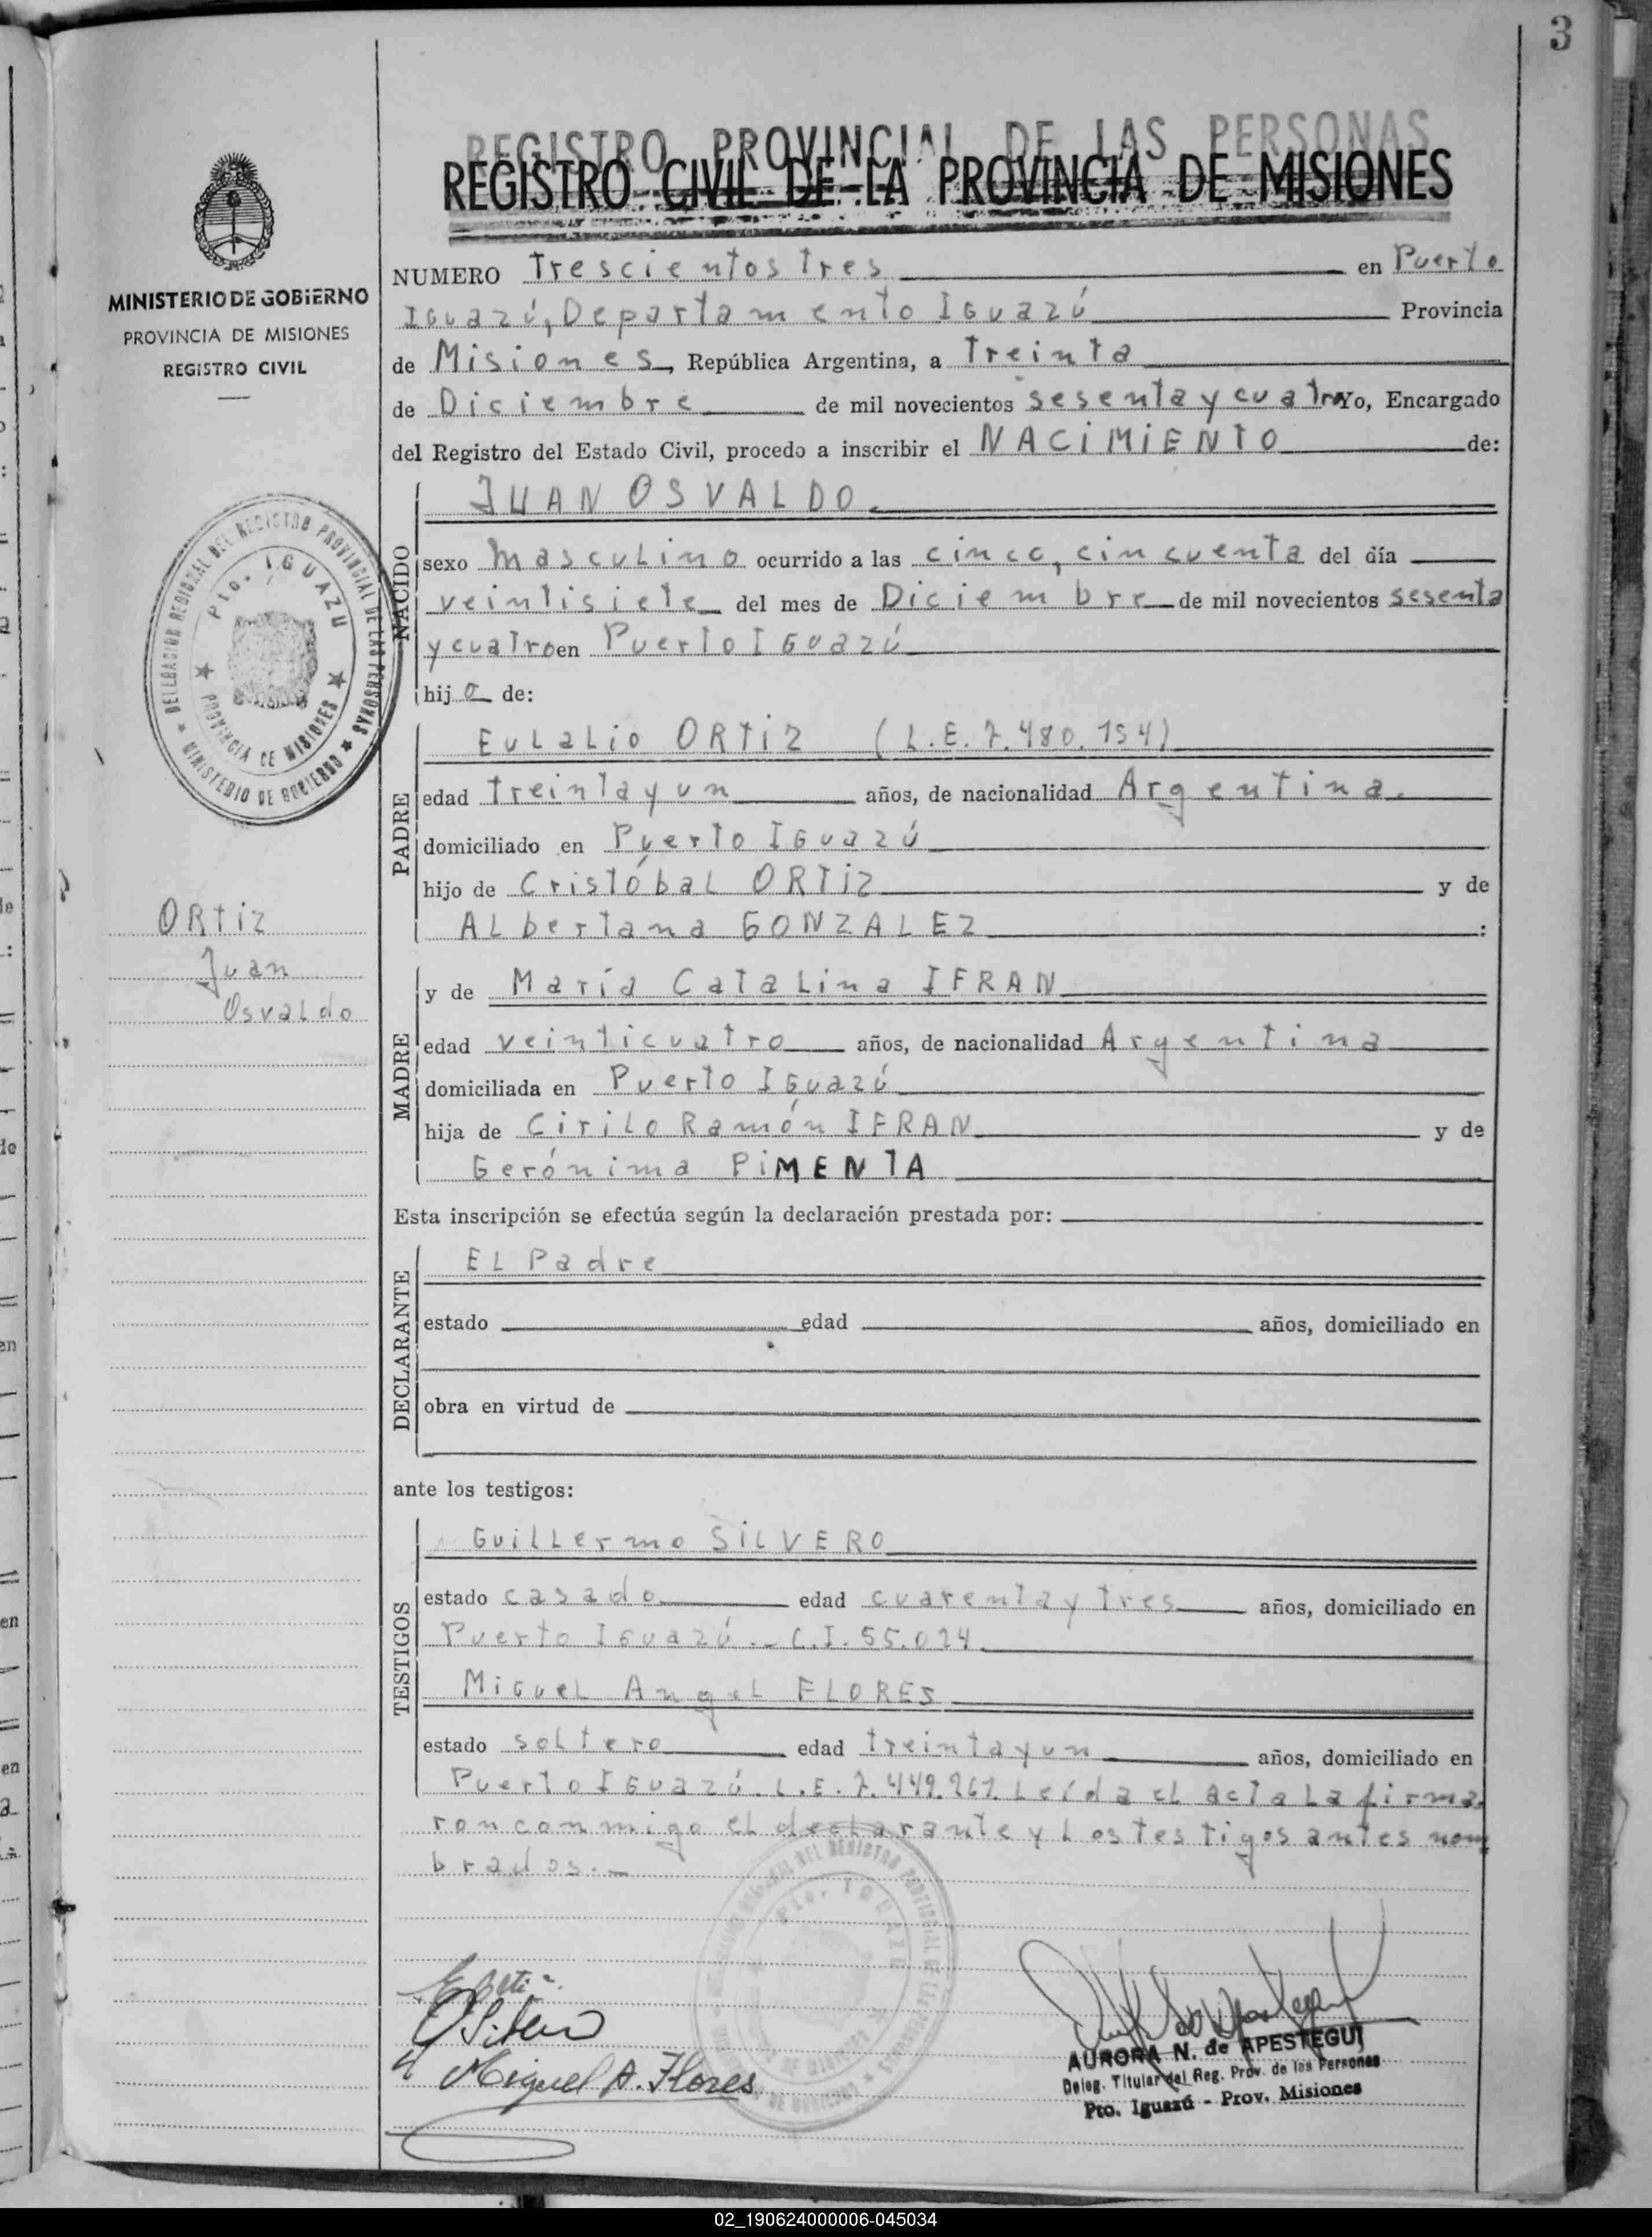 3
REGISTRO PROVINCIAL DE LAS PERSONAS
REGISTRO CIVIL DE LA PROVINCIA DE MISIONES
MINISTERIO DE GOBIERNO
PROVINCIA DE MISIONES
REGISTRO CIVIL
NUMERO Trescientos Tres en Puerto
Iguazú, Departamento Iguazú Provincia
de Misiones, República Argentina, a Treinta
de Diciembre de mil novecientos sesenta y cuatro Yo, Encargado
del Registro del Estado Civil, procedo a inscribir el NACIMIENTO de:
NACIDO
JUAN OSVALDO.
sexo masculino ocurrido a las cinco, cincuenta del día
veintisiete del mes de Diciembre de mil novecientos sesenta
y cuatro en Puerto Iguazú
hijo de:
DELEGACION REGIONAL DEL REGISTRO PROVINCIAL DE LAS PERSONAS
MINISTERIO DE GOBIERNO
Pto. IGUAZU
PROVINCIA DE MISIONES
PADRE
Eulalio ORTIZ (L.E. 7.480.154)
edad treinta y un años, de nacionalidad Argentina.
domiciliado en Puerto Iguazú
hijo de Cristóbal ORTIZ y de
Albertana GONZALEZ :
ORTIZ
Juan
Osvaldo
MADRE
y de María Catalina IFRAN
edad veinticuatro años, de nacionalidad Argentina
domiciliada en Puerto Iguazú
hija de Cirilo Ramón IFRAN y de
Gerónima PIMENTA
Esta inscripción se efectúa según la declaración prestada por:
DECLARANTE
El Padre
estado edad años, domiciliado en
obra en virtud de
ante los testigos:
TESTIGOS
Guillermo SILVERO
estado casado edad cuarenta y tres años, domiciliado en
Puerto Iguazú.- C.I. 55.014
Miguel Angel FLORES
estado soltero edad treinta y un años, domiciliado en
Puerto Iguazú. L.E. 7.449.267. Leída el acta la firma
ron conmigo el declarante y los testigos antes nom
brados.-
Pto. IGUAZU
E. Ortiz
G Silvero
Miguel A. Flores
AURORA N. de APESTEGUI
Deleg. Titular del Reg. Prov. de las Personas
Pto. Iguazú - Prov. Misiones
02_190624000006-045034